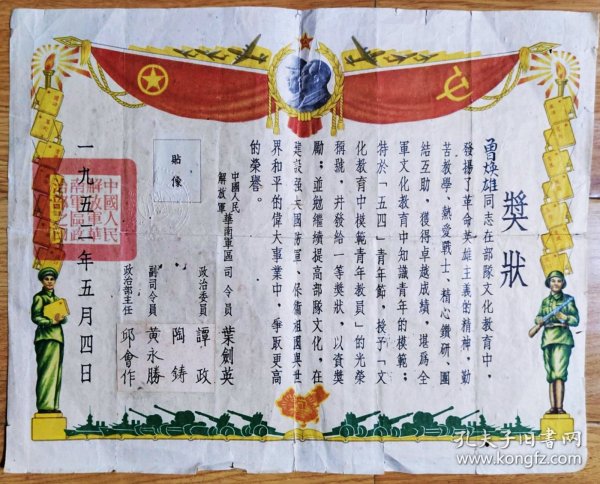 獎狀
曾煥雄同志在部隊文化教育中，
發揚了革命英雄主義的精神，勤
苦教學、熱愛戰士、精心鑽研、團
結互助，獲得卓越成績，堪為全
軍文化教育中知識青年的模範；
特於「五四」青年節，授予「文
化教育中模範青年教員」的光榮
稱號，幷發給一等獎狀，以資獎
勵；並勉繼續提高部隊文化，在
建設强大國防軍、保衛祖國與世
界和平的偉大事業中，爭取更高
的榮譽。
中國人民
解放軍
華南軍區司令員 葉劍英
政治委員 譚政
陶鑄
副司令員 黃永勝
政治部主任 邱會作
貼像
一九五二年五月四日
中國人民
解放軍華
南軍區政
治部之印
孔夫子旧书网
www.kongfz.com